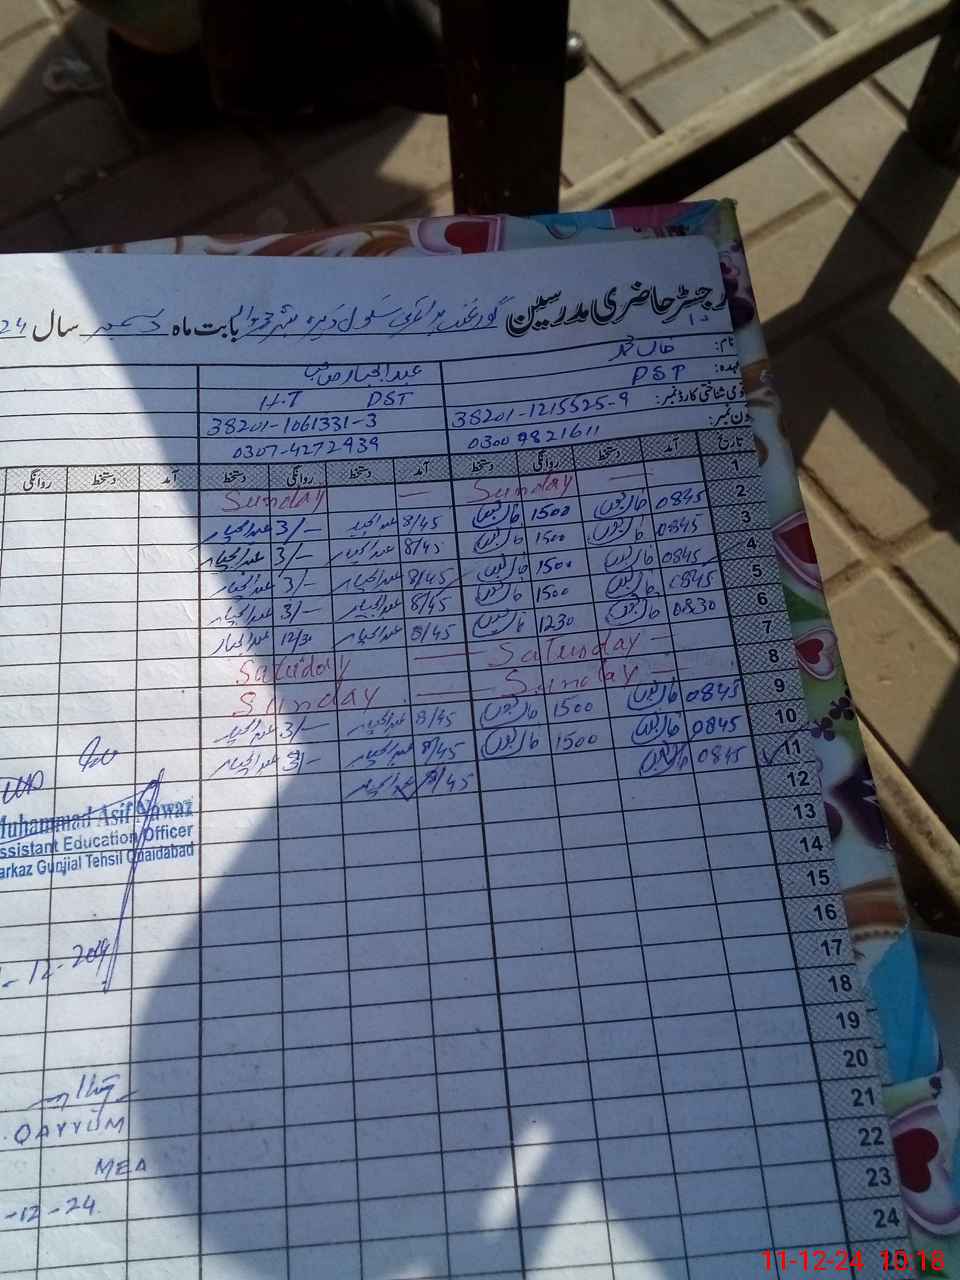 رجسٹر حاضری مدرسین گورنمنٹ پرائمری سکول بابت ماہ دسمبر سال 24
نام: خان محمد
عبدالجبار
عہدہ: PST
H-T PST
قومی شناختی کارڈ نمبر: 38201-1215525-9
38201-1061331-3
فون نمبر: 0300 9821611
0307-4272939
تاریخ آمد دستخط روانگی دستخط آمد دستخط روانگی دستخط آمد دستخط روانگی
1 — Sunday — Sunday
2 0845 1500 8/45 عبدالجبار 3/— عبدالجبار
3 0845 1500 8/45 عبدالجبار 3/— عبدالجبار
4 0845 1500 8/45 عبدالجبار 3/— عبدالجبار
5 0845 1500 8/45 عبدالجبار 3/— عبدالجبار
6 0830 1230 8/45 عبدالجبار 12/30 عبدالجبار
7 — Saturday — Saturday
8 — Sunday — Sunday
9 0845 1500 8/45 عبدالجبار 3/— عبدالجبار
10 0845 1500 8/45 عبدالجبار 3/— عبدالجبار
11 0845 8/45 عبدالجبار
12
13
14
15
16
17
18
19
20
21
22
23
24
Muhammad Asif Nawaz
Assistant Education Officer
Markaz Gunjial Tehsil Quaidabad
-12-2024
QAYYUM
MEA
-12-24
11-12-24 10:18